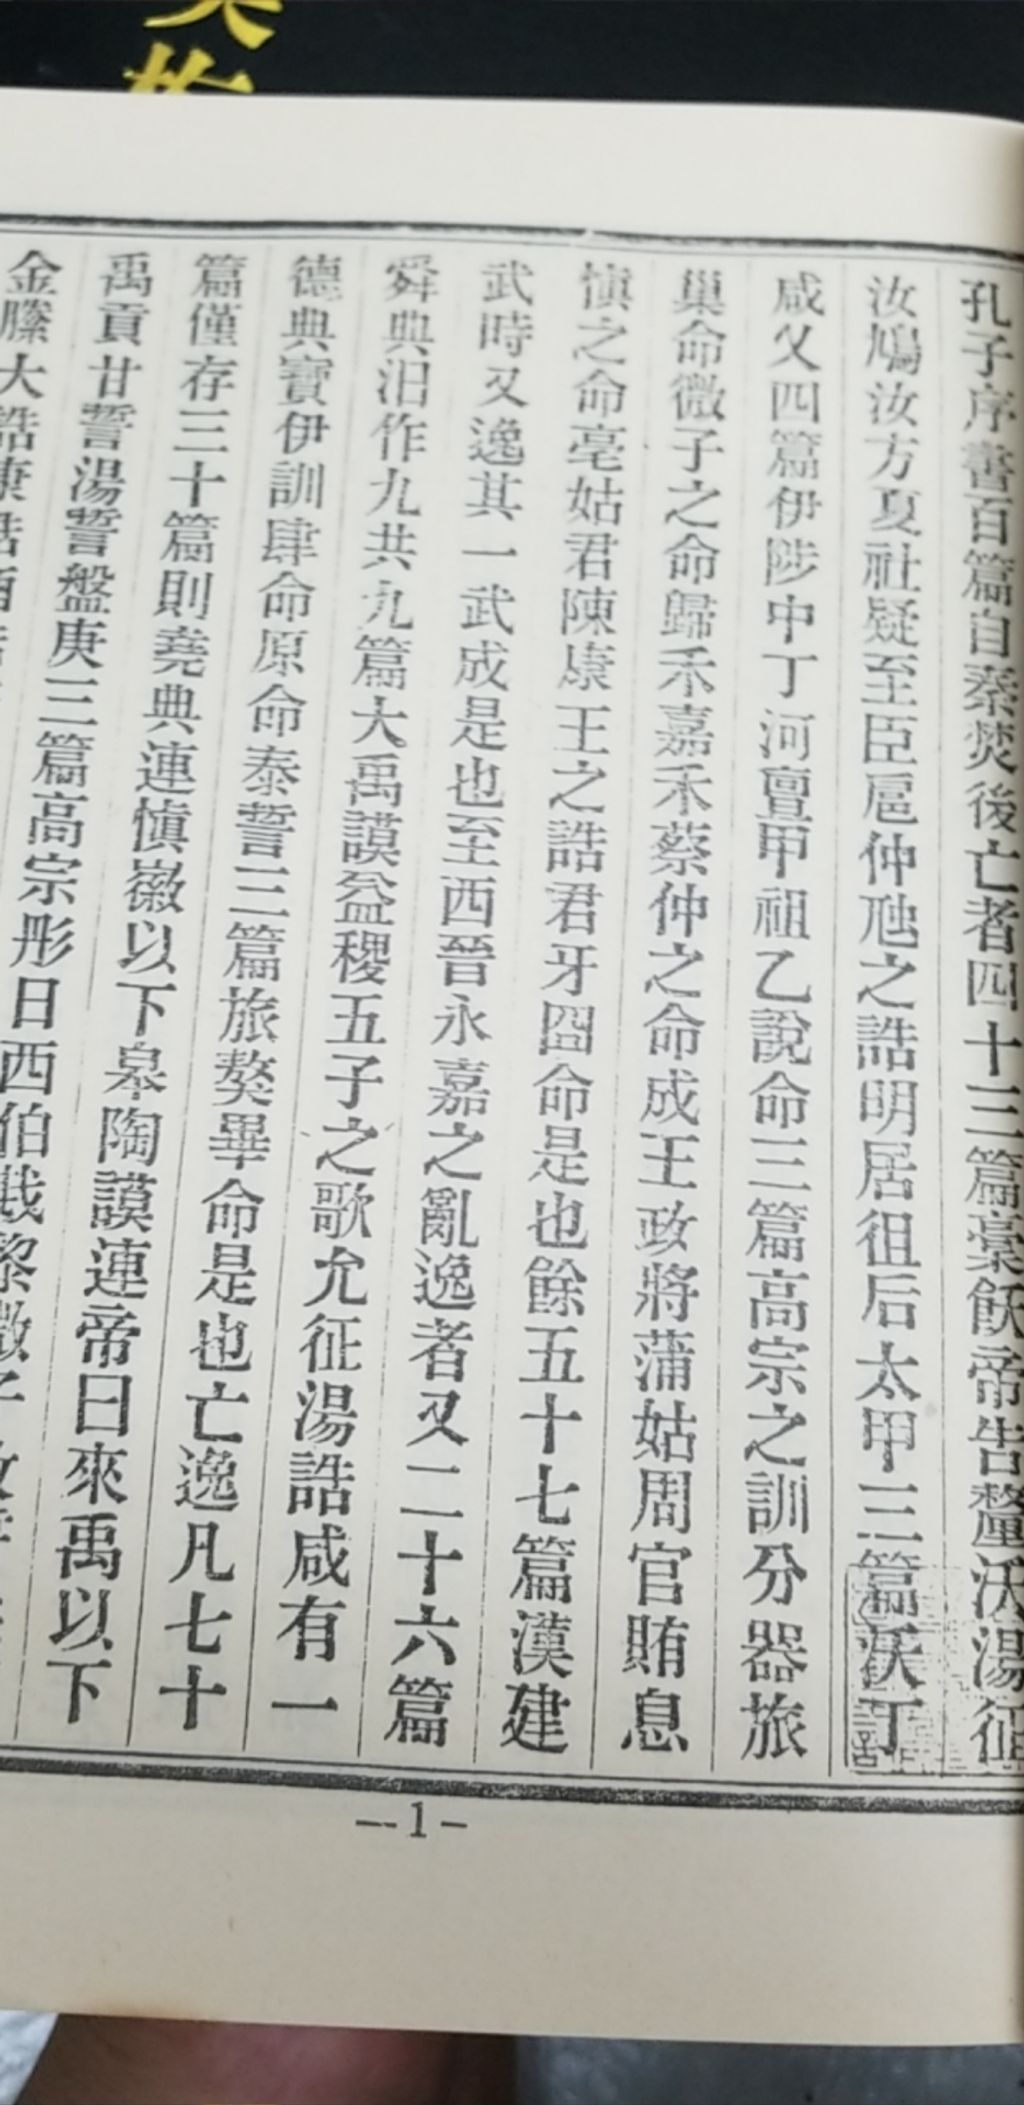 孔子序書百篇自秦焚後亡者四十三篇槀飫帝告釐沃湯征
汝鳩汝方夏社疑至臣扈仲虺之誥明居徂后太甲三篇沃丁
咸乂四篇伊陟仲丁河亶甲祖乙說命三篇高宗之訓分器旅
巢命微子之命歸禾嘉禾蔡仲之命成王政將蒲姑周官賄息
慎之命亳姑君陳康王之誥君牙囧命是也餘五十七篇漢建
武時又逸其一武成是也至西晉永嘉之亂逸者又二十六篇
舜典汨作九共九篇大禹謨益稷五子之歌允征湯誥咸有一
德典寶伊訓肆命原命泰誓三篇旅獒畢命是也亡逸凡七十
篇僅存三十篇則堯典連慎徽以下皋陶謨連帝曰來禹以下
禹貢甘誓湯誓盤庚三篇高宗肜日西伯戡黎微子
金縢大誥康誥酒
—1—